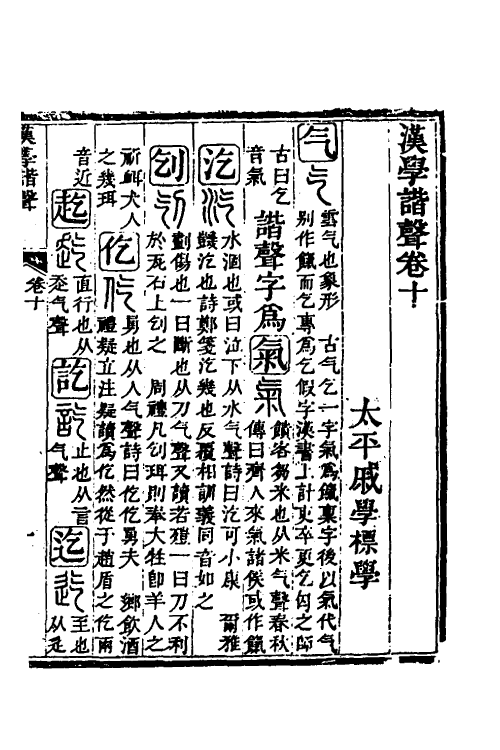 漢學諧聲卷十
太平戚學標學
气气雲气也象形　古气乞一字氣爲餼稟字後以氣代气
別作餼而乞專爲乞假字漢書上計吏卒更乞匃之師
古曰乞
音氣
諧聲字爲氣氣饋客芻米也从米气聲春秋
傳曰齊人來氣諸侯或作餼
汔汔水涸也或曰泣下从水气聲詩曰汔可小康　爾雅
饑汔也詩鄭箋汔幾也反覆相訓義同音如之
刉刉劃傷也一曰斷也从刀气聲又讀若殪一曰刀不利
於瓦石上刉之　周禮凡刉珥則奉大牲卽羊人之
祈衈犬人
之幾珥
仡仡勇也从人气聲詩曰仡仡勇夫　鄉飲酒
禮疑立注疑讀爲仡然從于趙盾之仡兩
音近
䞘䞘直行也从
走气聲
訖訖止也从言
气聲
迄迄至也
从辵
漢學諧聲
卷十